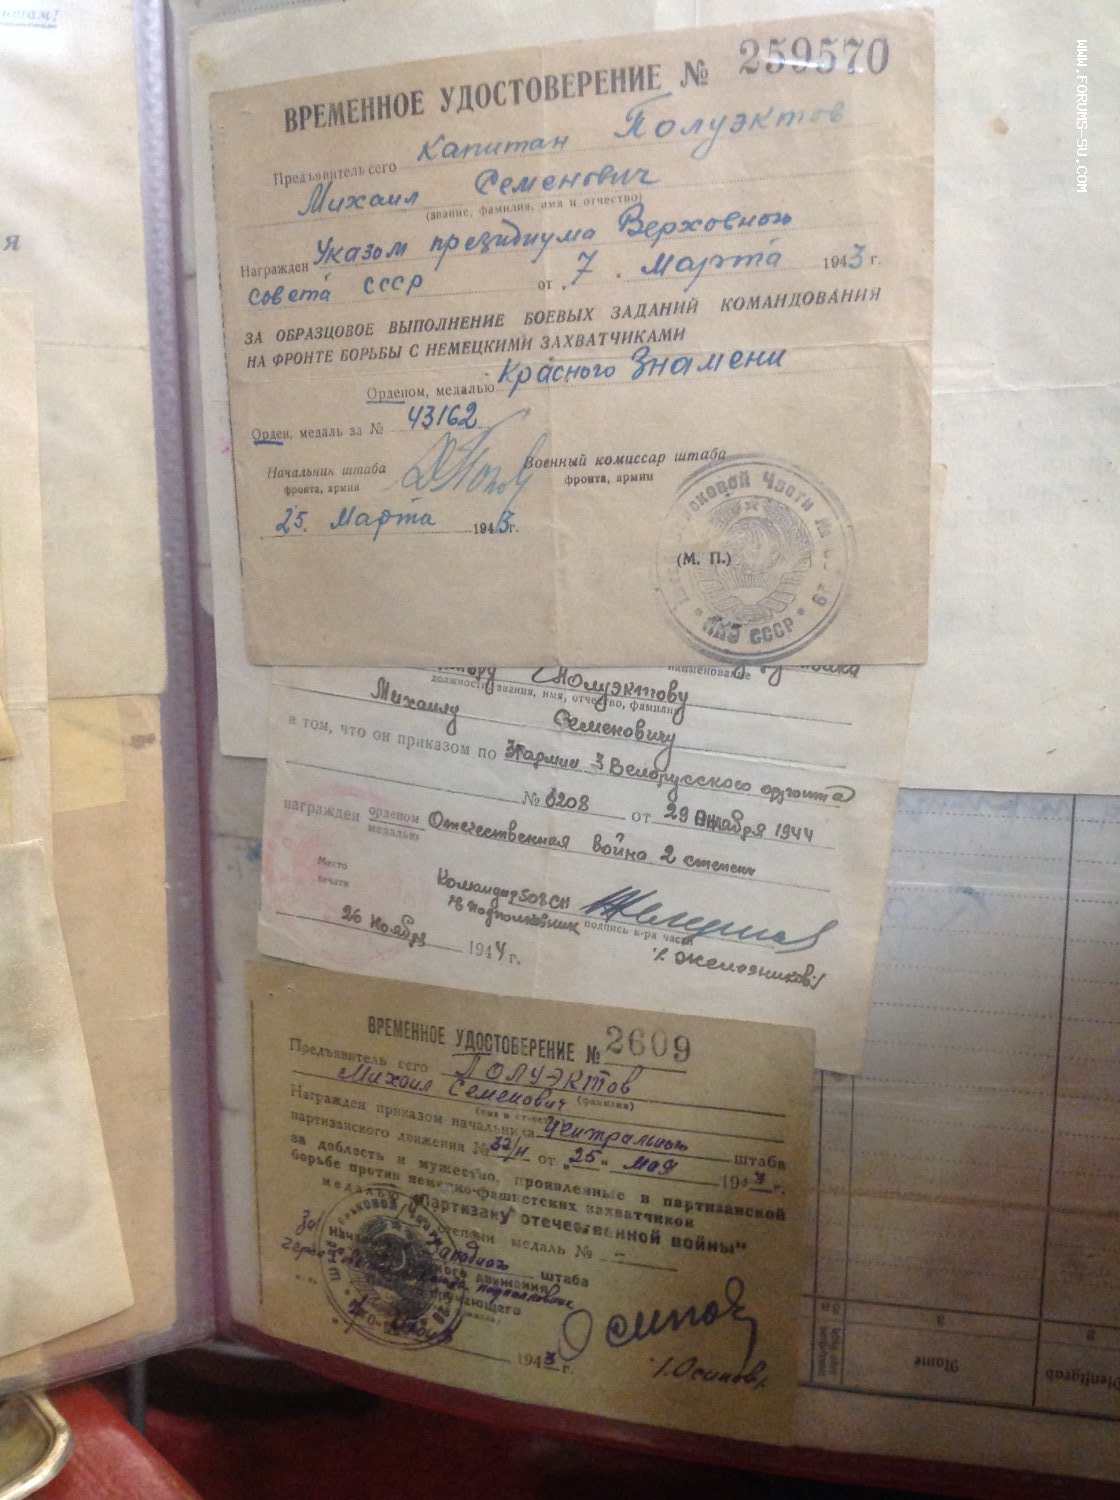 WWW.FORUMS-SU.COM
ВРЕМЕННОЕ УДОСТОВЕРЕНИЕ № 259570
Предъявитель сего капитан Полуэктов
Михаил Семенович
(звание, фамилия, имя и отчество)
Награжден Указом президиума Верховного
Совета СССР от „7" марта 1943 г.
ЗА ОБРАЗЦОВОЕ ВЫПОЛНЕНИЕ БОЕВЫХ ЗАДАНИЙ КОМАНДОВАНИЯ
НА ФРОНТЕ БОРЬБЫ С НЕМЕЦКИМИ ЗАХВАТЧИКАМИ
Орденом, медалью Красного Знамени
Орден, медаль за № 43162
Начальник штаба Военный комиссар штаба
фронта, армии фронта, армии
25. Марта 1943 г.
(М. П.)
НКО СССР
наименование
Полуэктову
должность, звания, имя, отчество, фамилия
Михаилу Семеновичу
в том, что он приказом по 31 армии 3 Белорусского фронта
№ 0208 от 29 октября 1944
награжден орденом Отечественная война 2 степени
медалью
Место
печати
Командир
подполковник
подпись к-ра части
26 Ноября 1944 г.
ВРЕМЕННОЕ УДОСТОВЕРЕНИЕ № 2609
Предъявитель сего ПОЛУЭКТОВ
(фамилия)
Михаил Семенович
Награжден приказом начальника Центрального штаба
партизанского движения № 32/н от „25" мая 1943 г.
за доблесть и мужество, проявленные в партизанской
борьбе против немецко-фашистских захватчиков
медалью „Партизану отечественной войны"
степени медаль № –
Западного штаба
движения
подполковник
1943 г.
/Осипов/
Name